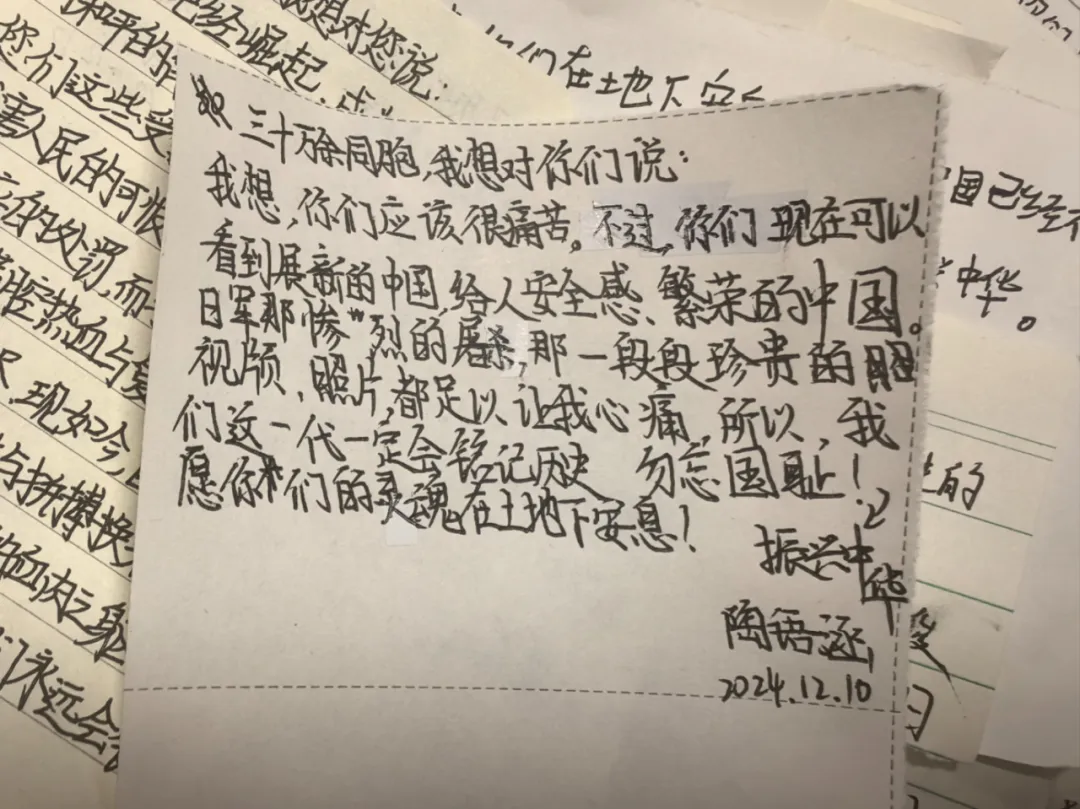 三十万余同胞,我想对你们说:
我想,你们应该很痛苦。不过,你们现在可以
看到展新的中国,给人安全感、繁荣的中国。
日军那惨“烈的屠杀,那一段段珍贵的
视频、照片,都足以让我心痛,所以,我
们这一代一定会铭记历史 勿忘国耻!
愿你们的灵魂在土地下安息!
振兴中华
陶语涵
2024.12.10
想对您说:
已经崛起
和平的
您们这些受
害人民的可恨
的处罚,而
腔热血与
现如今,
与拼搏换
血肉之躯
们永远会
们在地下安
国已经
中华。
的